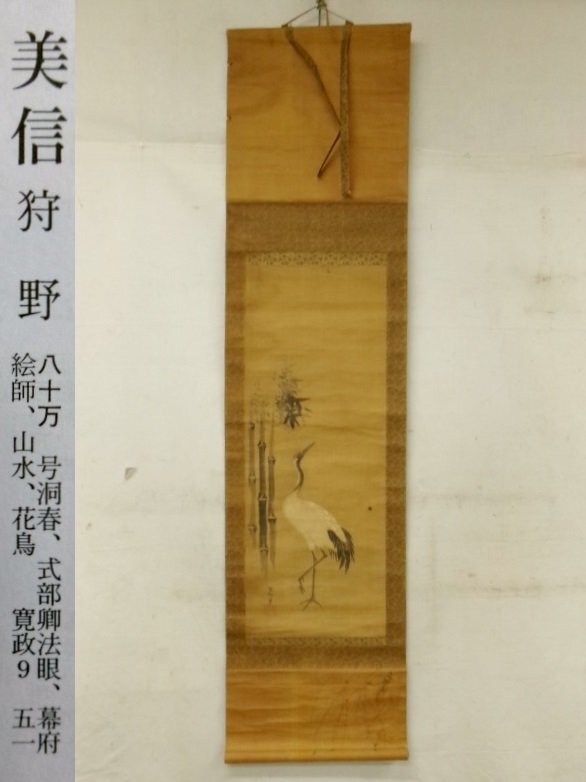 美信 狩野
八十万 号洞春、式部卿法眼、幕府
絵師、山水、花鳥 寛政9 五一